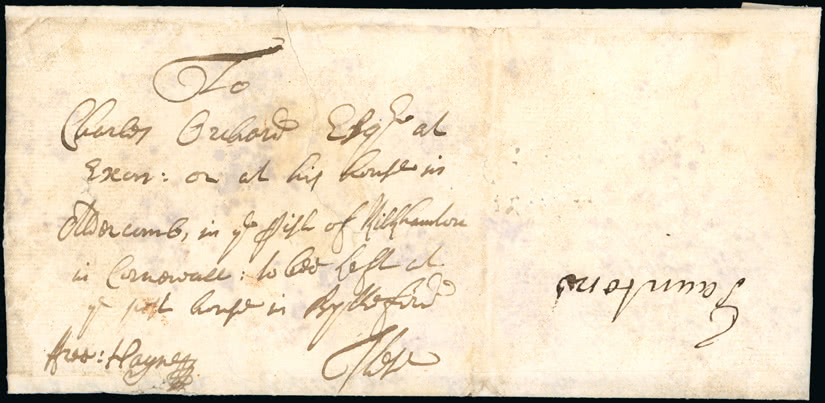 To
Charles Orchard Esqre at
Exon: or at his house in
Aldercomb, in ye pish of Kilkhamton
in Cornewall: to bee left at
ye post house in Bytheford
These
ffree: Hayne
Taunton